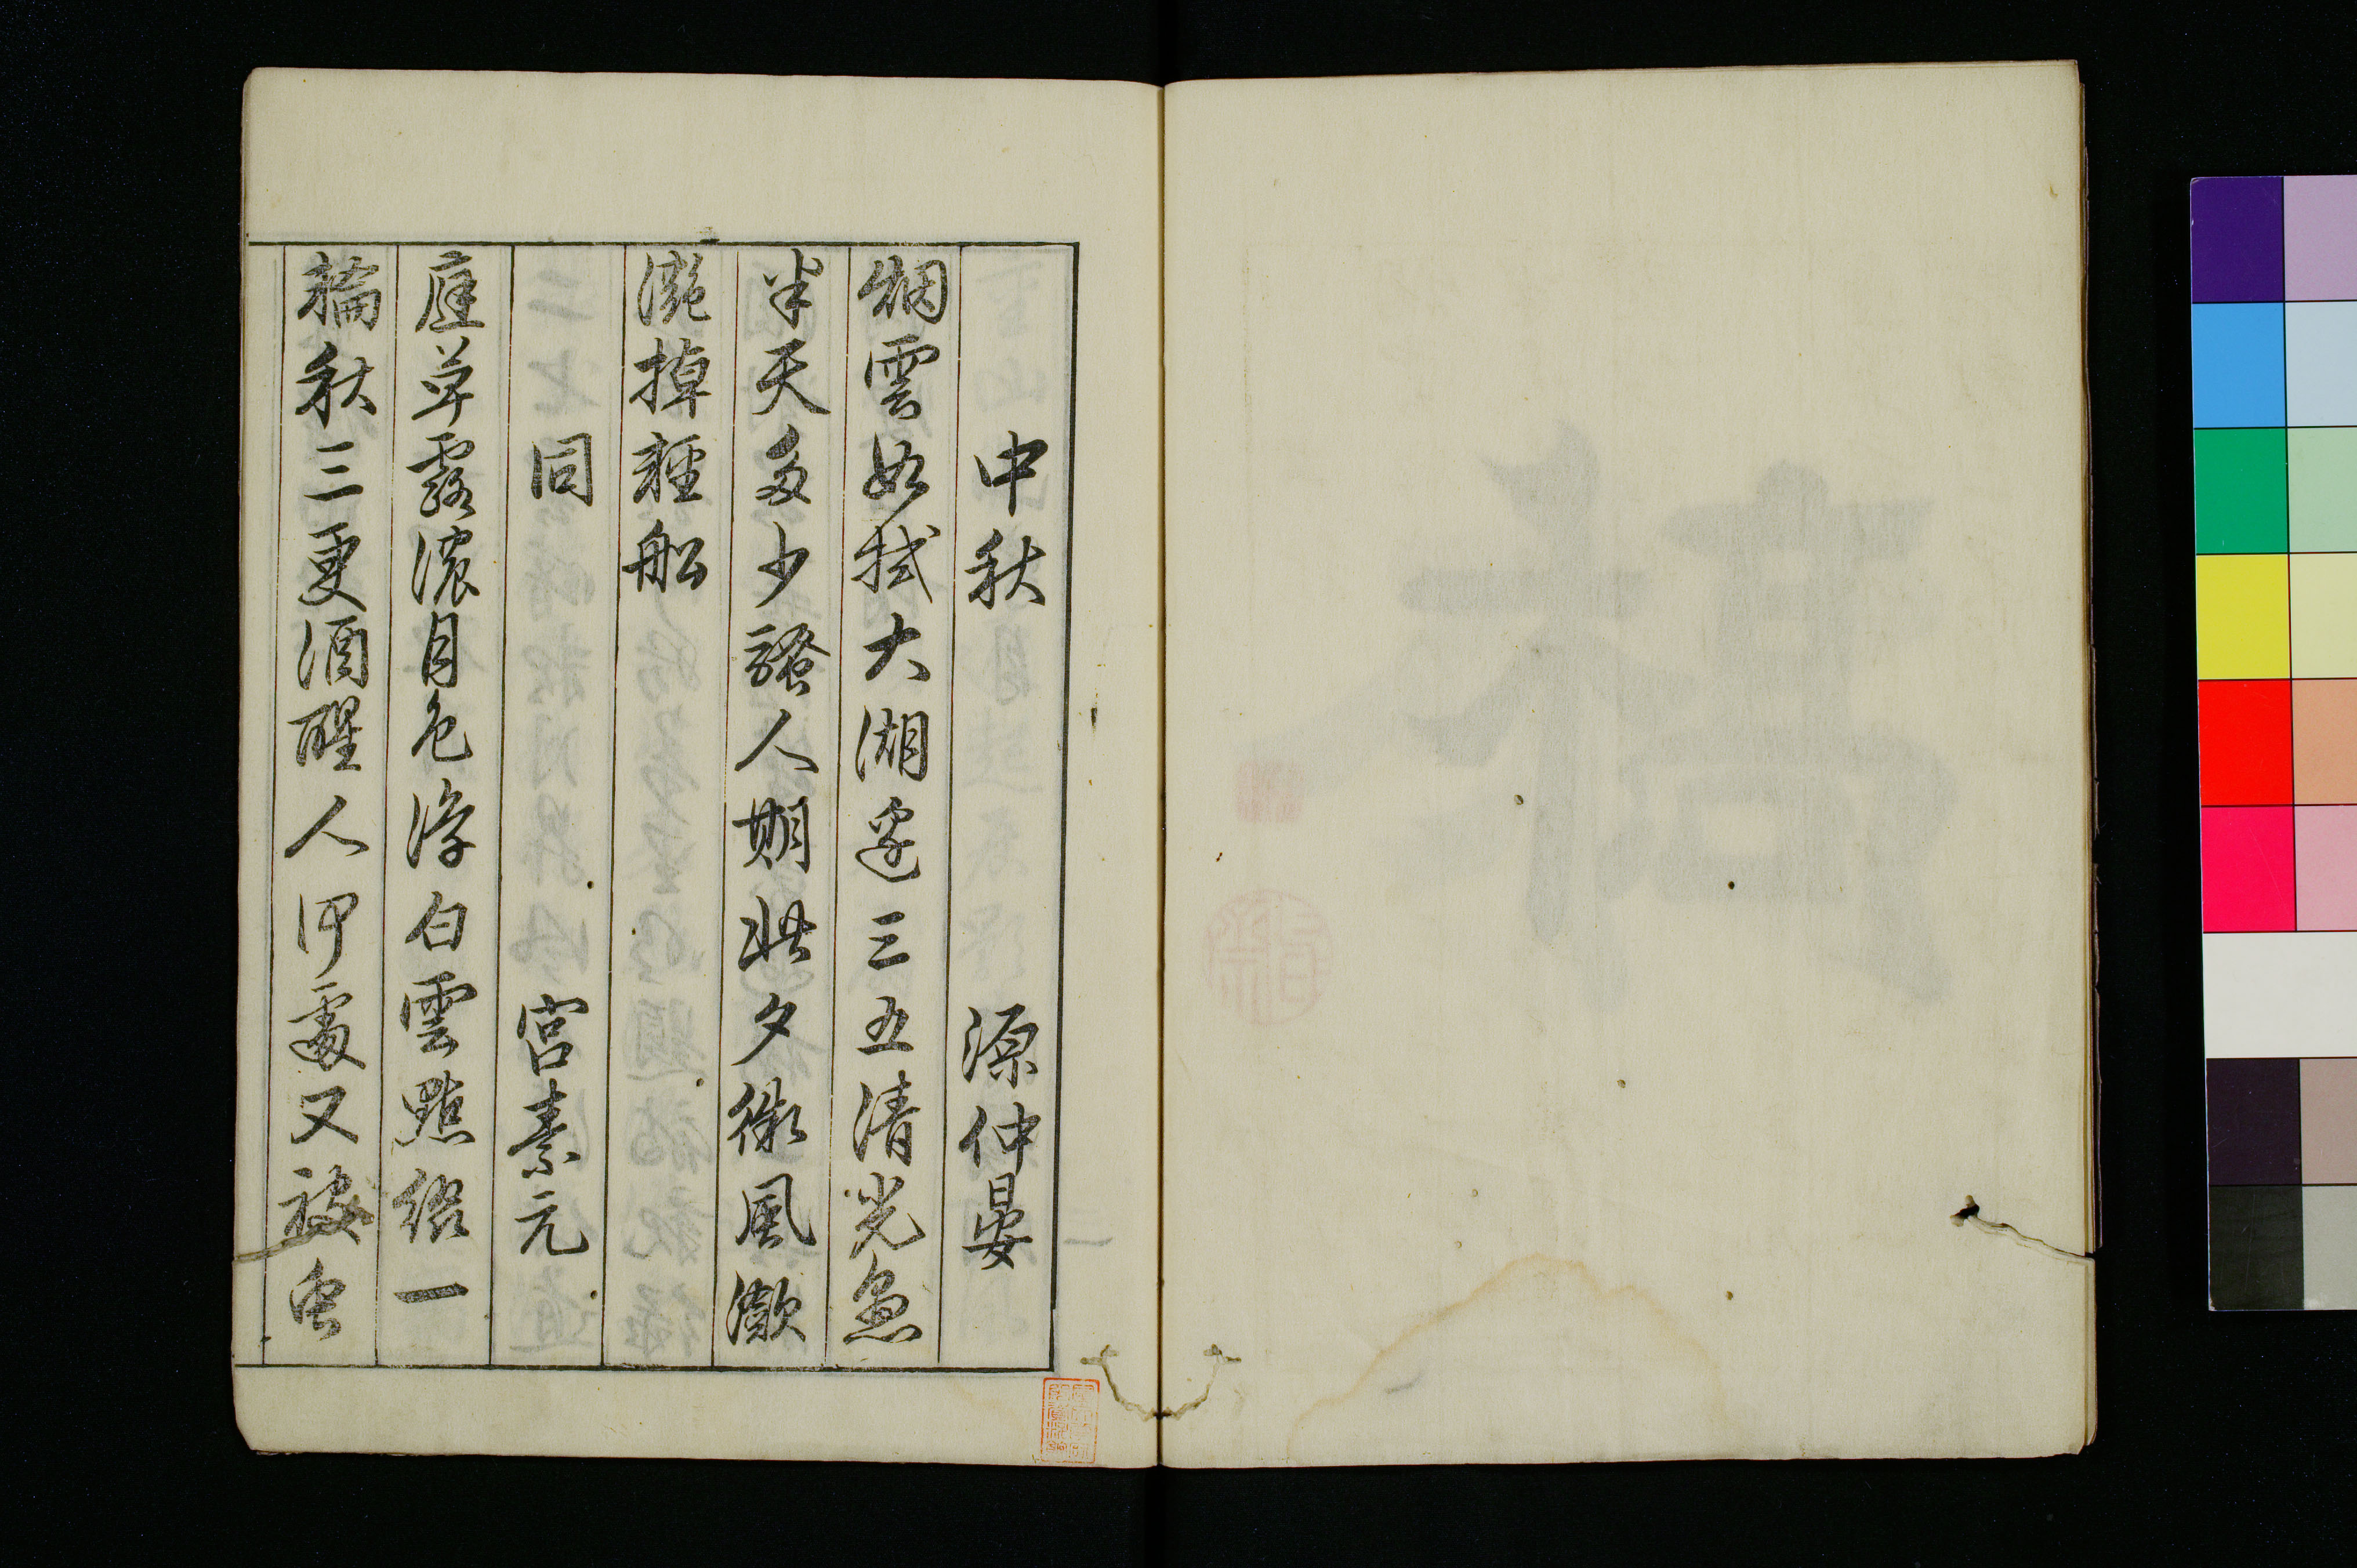 中秋　源仲晏
烟雲如拭大湖邊三五清光魚
半天多少騷人期此夕微風激
灔棹輕船
同　宮素元
庭草露濃月色浮白雲點綴一
輪秋三更酒醒人何處又被虫